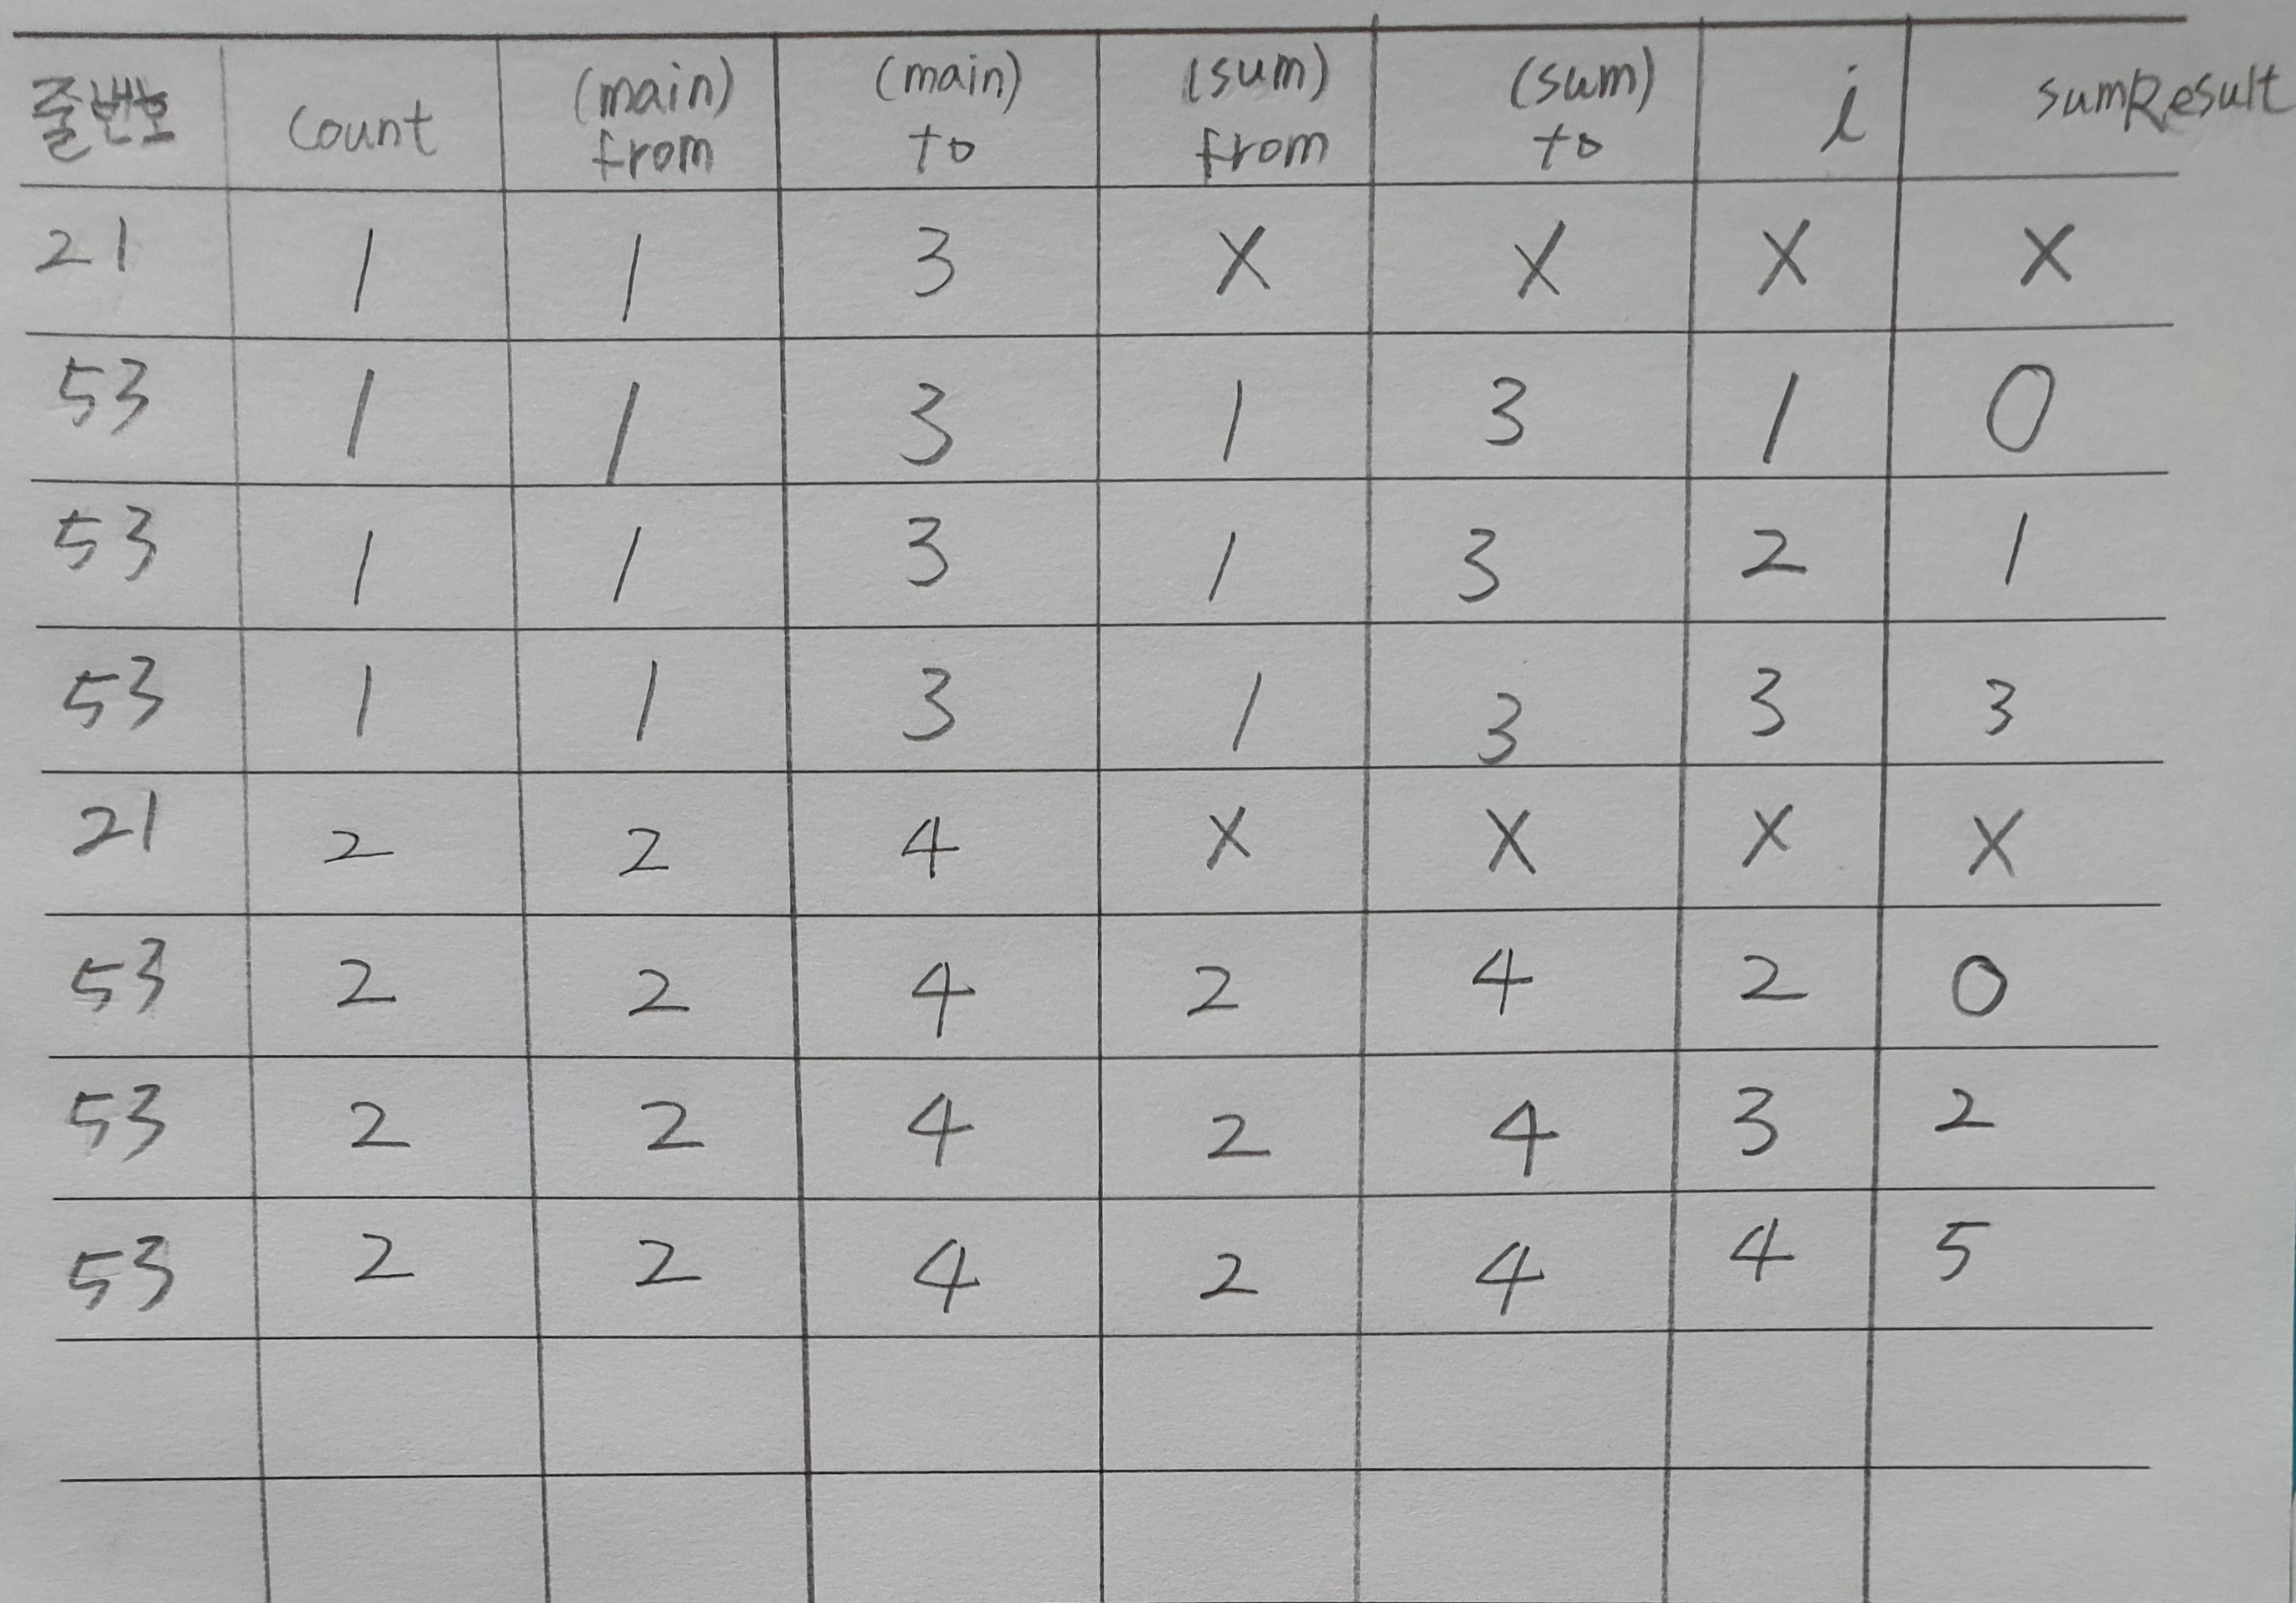 줄번호 count (main) from (main) to (sum) from (sum) to i sumResult
21 1 1 3 X X X X
53 1 1 3 1 3 1 0
53 1 1 3 1 3 2 1
53 1 1 3 1 3 3 3
21 2 2 4 X X X X
53 2 2 4 2 4 2 0
53 2 2 4 2 4 3 2
53 2 2 4 2 4 4 5